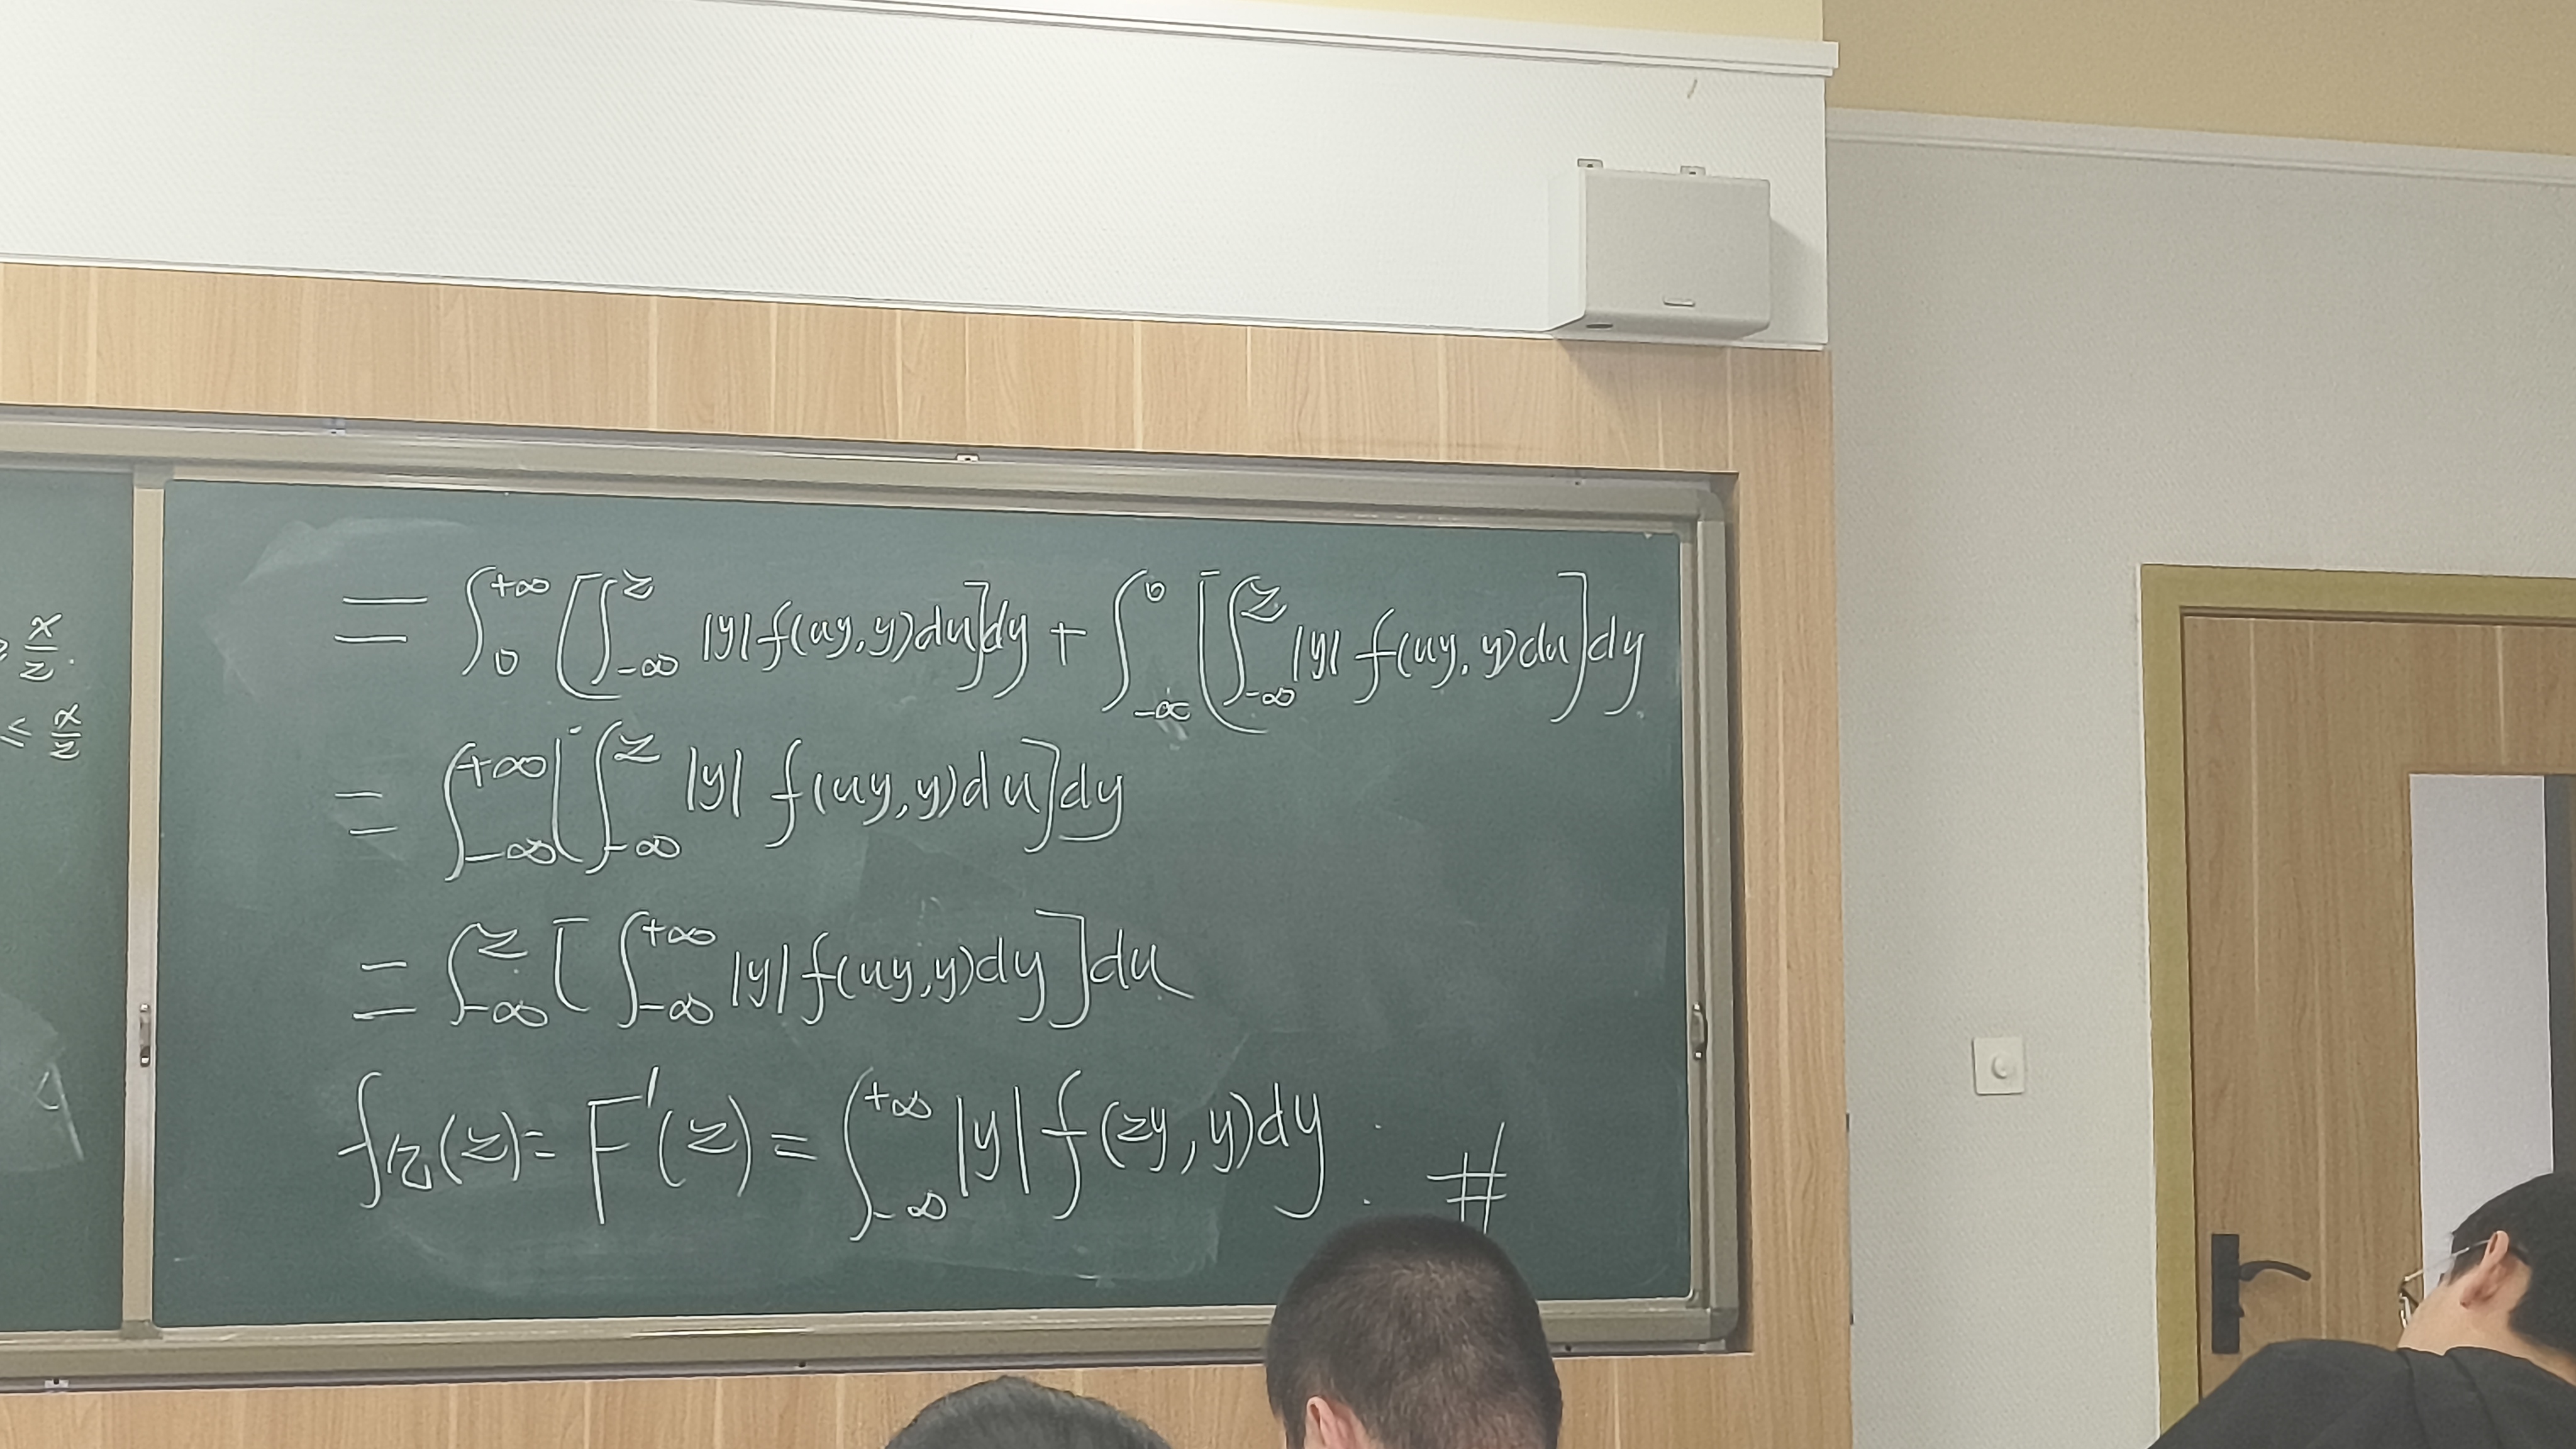 = ∫_0^{+∞} [∫_{-∞}^z |y| f(uy,y)du]dy + ∫_{-∞}^0 [∫_{-∞}^z |y| f(uy,y)du]dy
= ∫_{-∞}^{+∞} [∫_{-∞}^z |y| f(uy,y)du]dy
= ∫_{-∞}^z [∫_{-∞}^{+∞} |y| f(uy,y)dy]du
f_Z(z) = F'(z) = ∫_{-∞}^{+∞} |y| f(zy,y)dy. #
x/z
≤ x/z